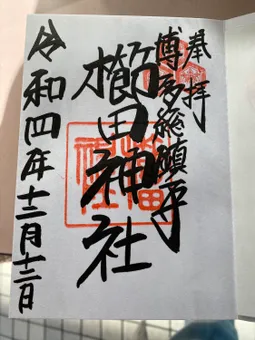 奉拝
博多総鎮守
櫛田神社
令和四年十二月十二日